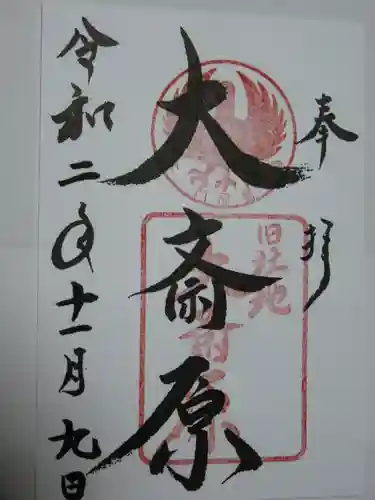 奉拝
旧社地
大斎原
令和二年十一月九日